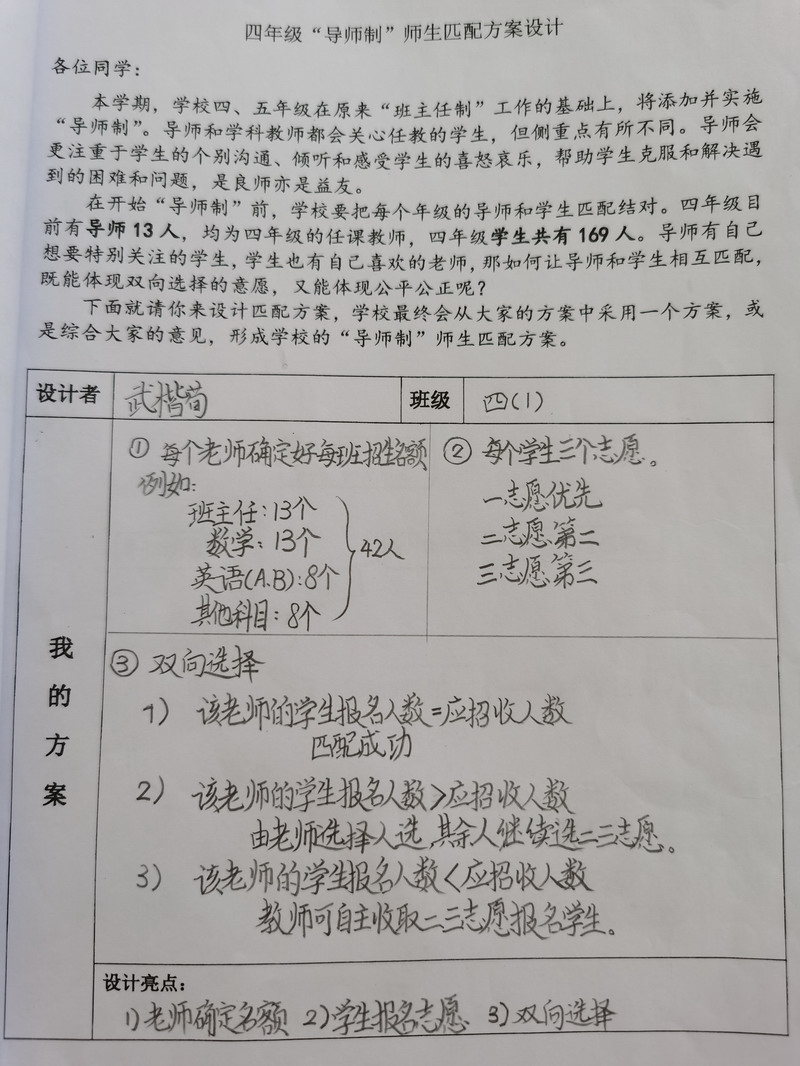 四年级“导师制”师生匹配方案设计
各位同学：
本学期，学校四、五年级在原来“班主任制”工作的基础上，将添加并实施
“导师制”。导师和学科教师都会关心任教的学生，但侧重点有所不同。导师会
更注重于学生的个别沟通、倾听和感受学生的喜怒哀乐，帮助学生克服和解决遇
到的困难和问题，是良师亦是益友。
在开始“导师制”前，学校要把每个年级的导师和学生匹配结对。四年级目
前有导师13人，均为四年级的任课教师，四年级学生共有169人。导师有自己
想要特别关注的学生，学生也有自己喜欢的老师，那如何让导师和学生相互匹配，
既能体现双向选择的意愿，又能体现公平公正呢？
下面就请你来设计匹配方案，学校最终会从大家的方案中采用一个方案，或
是综合大家的意见，形成学校的“导师制”师生匹配方案。
设计者 武楷荀 班级 四(1)
我的方案
① 每个老师确定好每班招生名额
例如：
班主任：13个
数学：13个
英语(A.B)：8个
其他科目：8个
42人
② 每个学生三个志愿。
一志愿优先
二志愿第二
三志愿第三
③ 双向选择
1) 该老师的学生报名人数=应招收人数
匹配成功
2) 该老师的学生报名人数>应招收人数
由老师选择人选，其余人继续选二三志愿。
3) 该老师的学生报名人数<应招收人数
教师可自主收取二三志愿报名学生。
设计亮点：
1)老师确定名额 2)学生报名志愿 3)双向选择